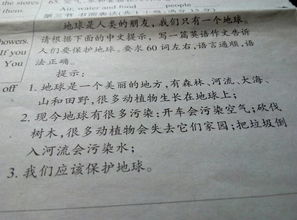 them.
Air, water and food
people
地球是人类的朋友,我们只有一个地球。
howers.
请根据下面的中文提示,写一篇英语作文告诉
If you
人们要保护地球。要求60词左右,语言通顺,语
法正确。
提示:
off
1. 地球是一个美丽的地方,有森林、河流、大海、
山和田野,很多动植物生长在地球上;
2. 现今地球有很多污染:开车会污染空气;砍伐
树木,很多动植物会失去它们家园;把垃圾倒
入河流会污染水;
3. 我们应该保护地球。